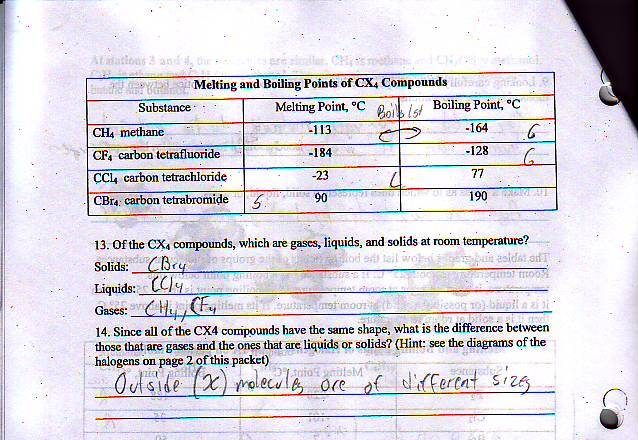 Melting and Boiling Points of CX₄ Compounds
Substance Melting Point, °C Boils 1st Boiling Point, °C
CH₄ methane -113 -164 G
CF₄ carbon tetrafluoride -184 -128 G
CCl₄ carbon tetrachloride -23 L 77
CBr₄ carbon tetrabromide S 90 190
13. Of the CX₄ compounds, which are gases, liquids, and solids at room temperature?
Solids: CBr4
Liquids: CCl4
Gases: CH4, CF4
14. Since all of the CX4 compounds have the same shape, what is the difference between
those that are gases and the ones that are liquids or solids? (Hint: see the diagrams of the
halogens on page 2 of this packet)
Outside (x) molecules are of different sizes